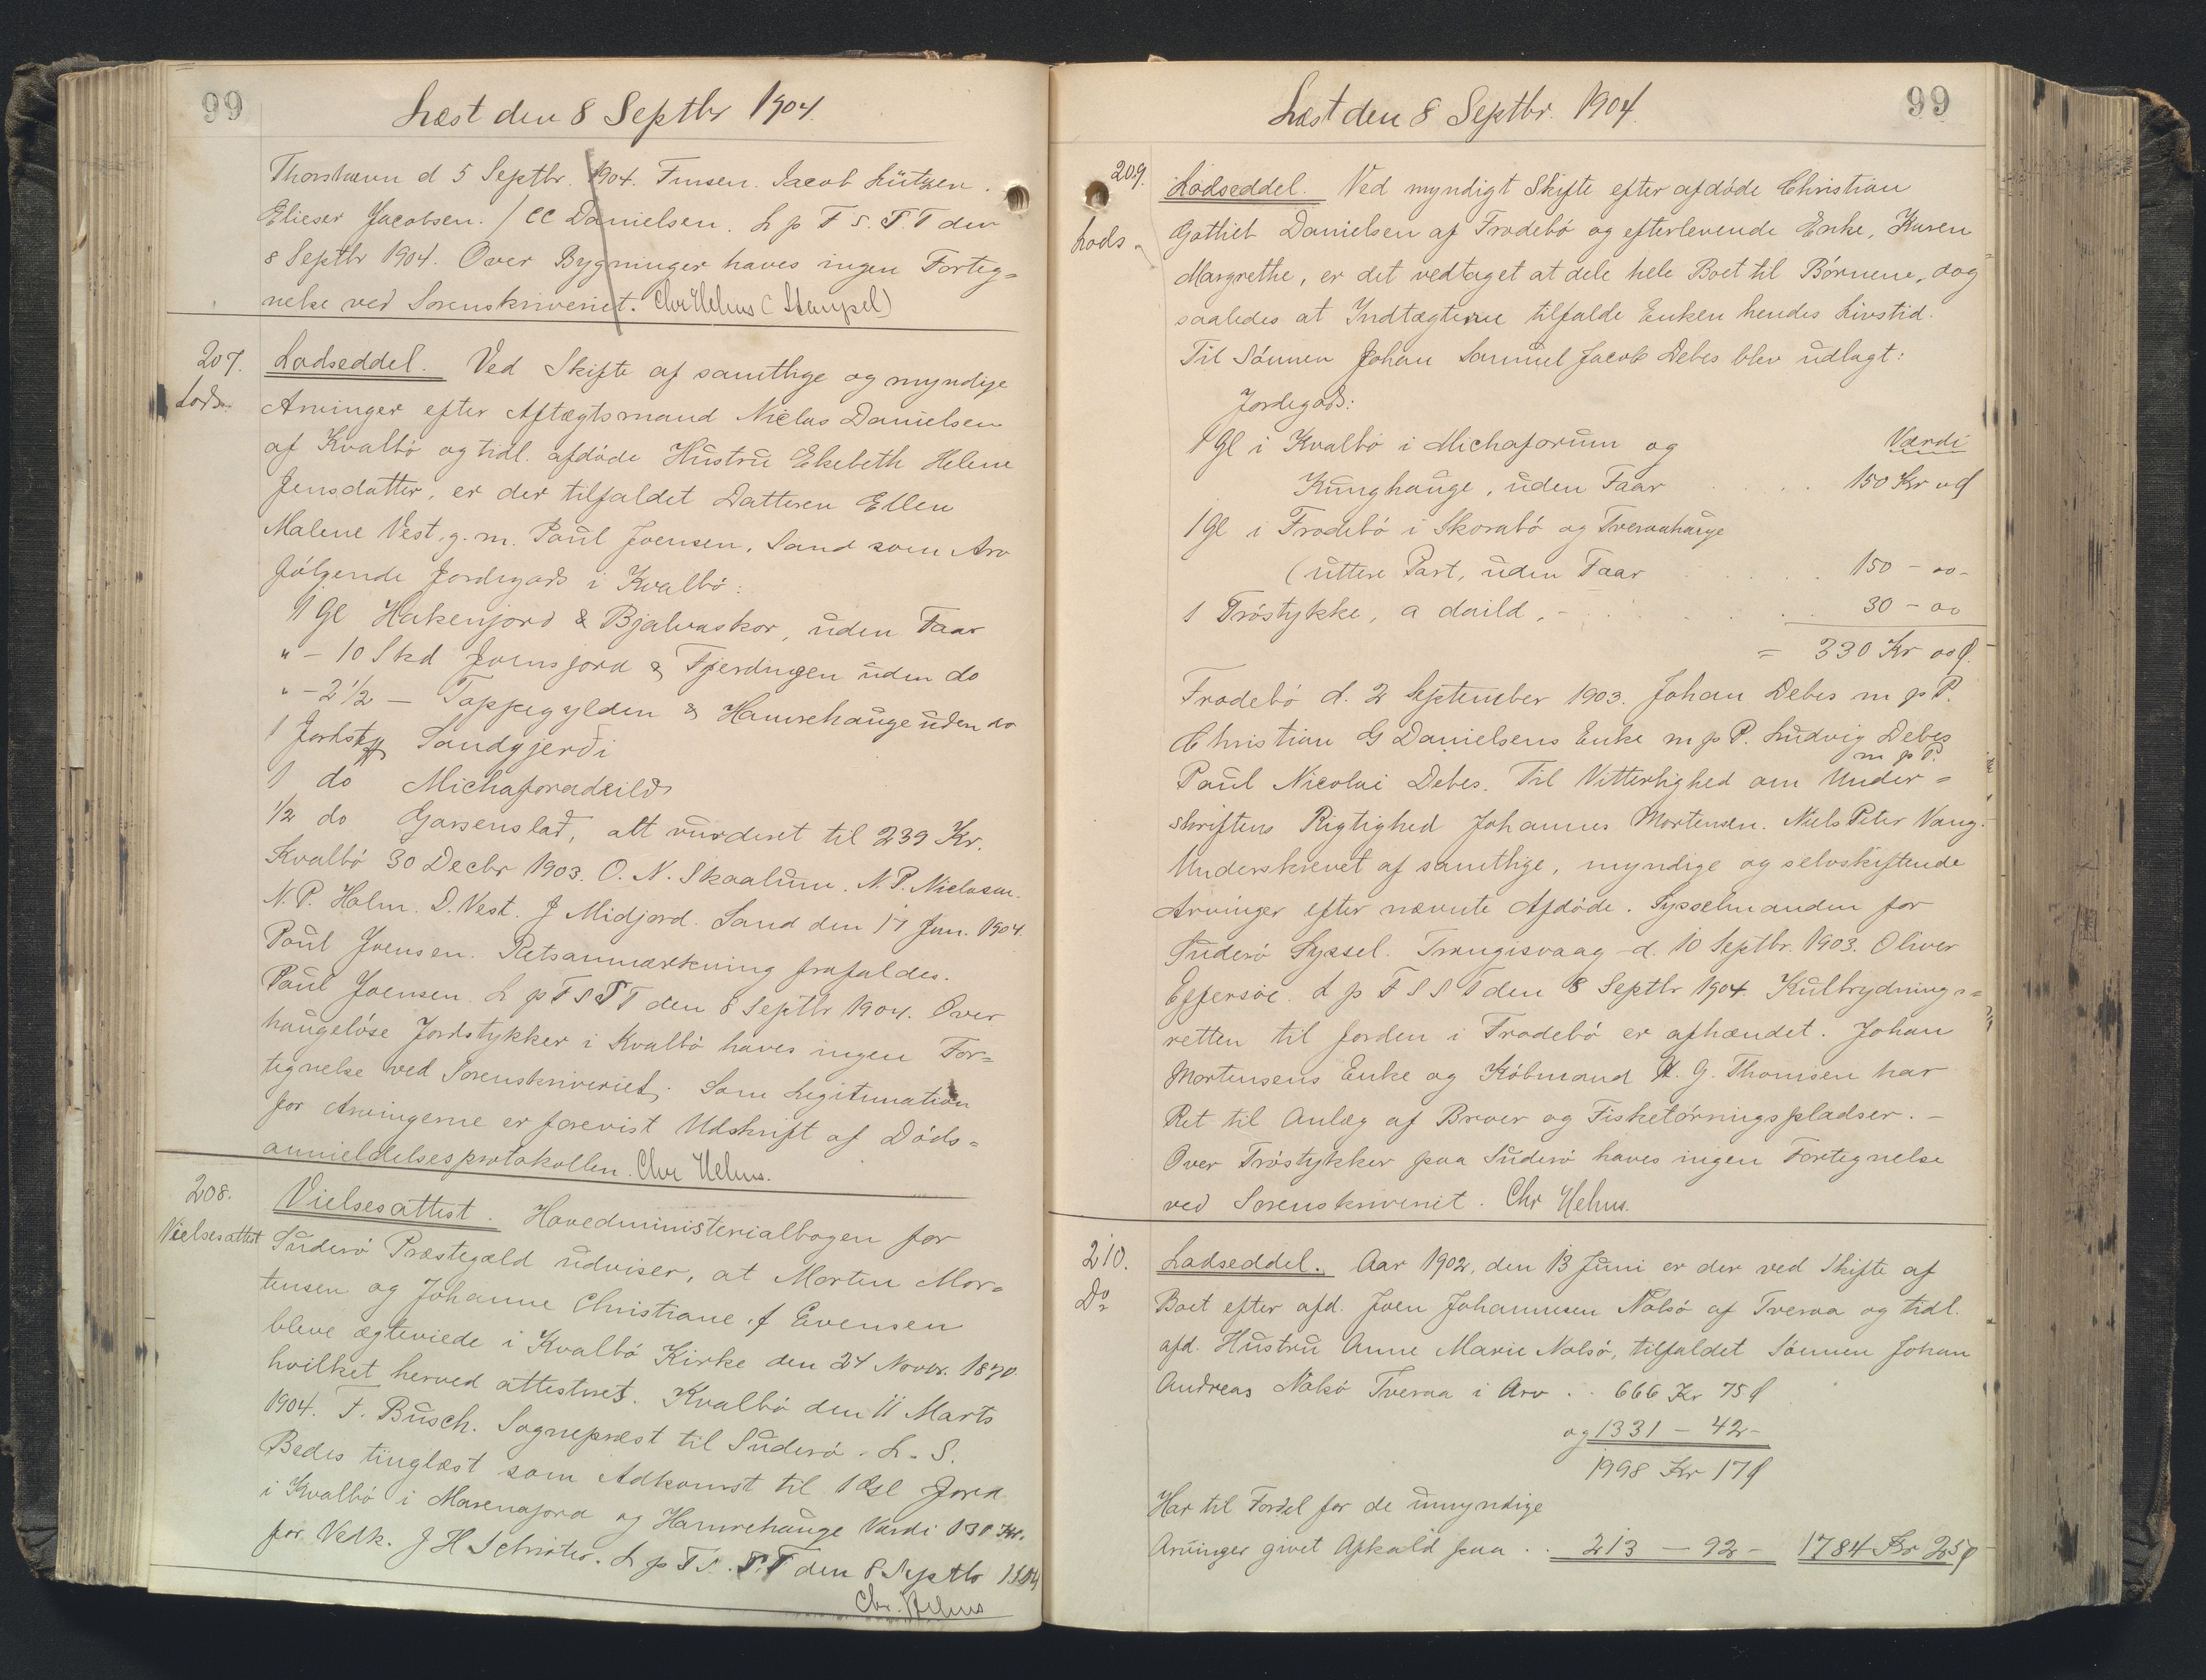 99
Læst den 8 Septbr 1904.
Thorshavn d 5 Septbr. 1904. Finsen. Jacob Lützen.
Elieser Jacobsen. / CC Danielsen. L p F S. S. T den
8 Septbr 1904. Over Bygninger haves ingen Forteg=
nelse ved Sorenskriveriet. Chr Uehus (Stempel)
207.
Lods
Lodseddel. Ved Skifte af samtlige og myndige
Arvinger efter Aftægtsmand Niclas Danielsen
af Kvalbö og tidl. afdöde Hustru Elsebeth Helene
Jensdatter, er der tilfaldet Datteren Ellen
Malene Vest, g. m. Paul Joensen, Sand som Arv
følgende Jordegods i Kvalbö:
1 Gl Hakenjord & Bjalvaskor, uden Faar
" – 10 Skd Joensjord & Fjerdingen uden do
" – 2 1/2 — Toppegylden & Hamrehauge uden do
1 Jordstk Sandgjerdi
1 do Michaforadeild
1/2 do Garsenslad, alt vurderet til 239 Kr.
Kvalbö 30 Decbr 1903. O. N. Skaalum. N. P. Niclasen.
N. P. Holm. D. Vest. J Midjord. Sand den 17 Jan. 1904.
Paul Joensen. Retsanmærkning frafaldes.
Paul Joensen. L p F S S T den 8 Septbr 1904. Over
haugelöse Jordstykker i Kvalbö haves ingen For=
tegnelse ved Sorenskriveriet; Som Legitimation
for Arvingerne er forevist Udskrift af Döds=
anmeldelsesprotokollen. Chr Uehus.
208.
Vielsesattest
Vielsesattest. Hovedministerialbogen for
Suderö Præstegæld udviser, at Morten Mor=
tensen og Johanne Christiane f. Evensen
bleve ægteviede i Kvalbö Kirke den 24 Novbr. 1870
hvilket herved attesteres. Kvalbö den 11 Marts
1904. F. Busch. Sognepræst til Suderö. L. S.
Bedes tinglæst som Adkomst til 1 Gl Jord
i Kvalbö i Marenajord og Hamrehauge Værdi 130 Kr.
for Vedk. J H Schröter. L p F S. S. T den 8 Septbr 1904
Chr. Uehus
99
Læst den 8 Septbr. 1904.
209.
Lods
Lodseddel. Ved myndigt Skifte efter afdöde Christian
Gottlieb Danielsen af Frodebö og efterlevende Enke, Karen
Margrethe, er det vedtaget at dele hele Boet til Börnene, dog
saaledes at Indtægterne tilfalde Enken hendes Livstid.
Til Sönnen Johan Samuel Jacob Debes blev udlagt:
Jordegods:
1 Gl i Kvalbö i Michaforum og Værdi
Kunghauge, uden Faar . . . . 150 Kr
1 Gl i Frodebö i Skorabö og Tveraahauge
(uttere Part, uden Faar . . . . 150 – 00 –
1 Tröstykke, a daild, – . . . . 30 – 00
= 330 Kr 00 ø.
Frodebö d. 2 September 1903. Johan Debes m p P.
Christian G Danielsens Enke m p P. Ludvig Debes
m p P.
Paul Nicolai Debes. Til Vitterlighed om Under=
skriftens Rigtighed Johannes Mortensen. Niels Peter Vang.
Underskrevet af samtlige, myndige og selvskiftende
Arvinger efter nævnte Afdöde. Sysselmanden for
Suderö Syssel. Trangisvaag d. 10 Septbr. 1903. Oliver
Effersöe. L p F S S T den 8 Septbr 1904. Kulbrydnings=
retten til Jorden i Frodebö er afhændet. Johan
Mortensens Enke og Köbmand K. G. Thomsen har
Ret til Anlæg af Broer og Fisketörringspladser. –
Over Tröstykker paa Suderö haves ingen Fortegnelse
ved Sorenskriveriet. Chr Uehus.
210.
Do
Lodseddel. Aar 1902, den 13 Juni er der ved Skifte af
Boet efter afd. Joen Johannesen Nolsö af Tveraa og tidl.
afd. Hustru Anne Marie Nolsö, tilfaldet Sönnen Johan
Andreas Nolsö Tveraa i Arv . . 666 Kr 75 ø
og 1331 – 42 –
1998 Kr 17 ø
Har til Fordel for de umyndige
Arvinger givet Afkald paa . . 213 – 92 – 1784 Kr 25 ø